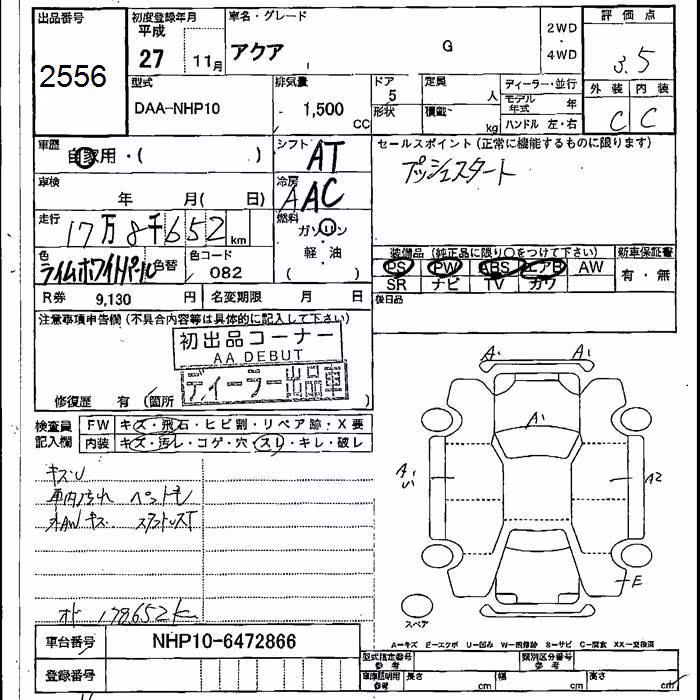 出品番号 初度登録年月 車名・グレード 評価点
2556 平成 27 11月 アクア G 2WD ・ 4WD 3.5
型式 排気量 ドア 定員 ディーラー・並行 外装 内装
DAA-NHP10 1,500 CC 5 人 モデル年式 年 C C
形状 積載 kg ハンドル 左・右
車歴 自家用・( ) シフト AT セールスポイント(正常に機能するものに限ります)
プッシュスタート
車検 年 月( 日) 冷房 AAC
走行 17万8千652km 燃料 ガソリン
軽・油
( )
色 ライムホワイトパール 色替 色コード 082
装備品(純正品に限り○をつけて下さい) 新車保証書
PS PW ABS エアB AW 有・無
SR ナビ TV カワ
後日品
R券 9,130 円 名変期限 月 日
注意事項申告欄(不具合内容等は具体的に記入して下さい)
初出品コーナー
AA DEBUT
ディーラー出品車
修復歴 有(箇所 )
検査員記入欄 FW キズ・飛石・ヒビ割・リペア跡・X要
内装 キズ・汚レ・コゲ・穴・スレ・キレ・破レ
A1 A1
A1
A1 U1 A2
E
キズU
車内汚れ
AWキズ
178,652k
スペア
車台番号 NHP10-6472866
A=キズ E=エクボ U=凹み W=補修跡 S=サビ C=腐食 XX=交換済
登録番号
型式指定番号 参考 類別区分番号 参考
車庫証明用 参考 長さ cm 幅 cm 高さ cm